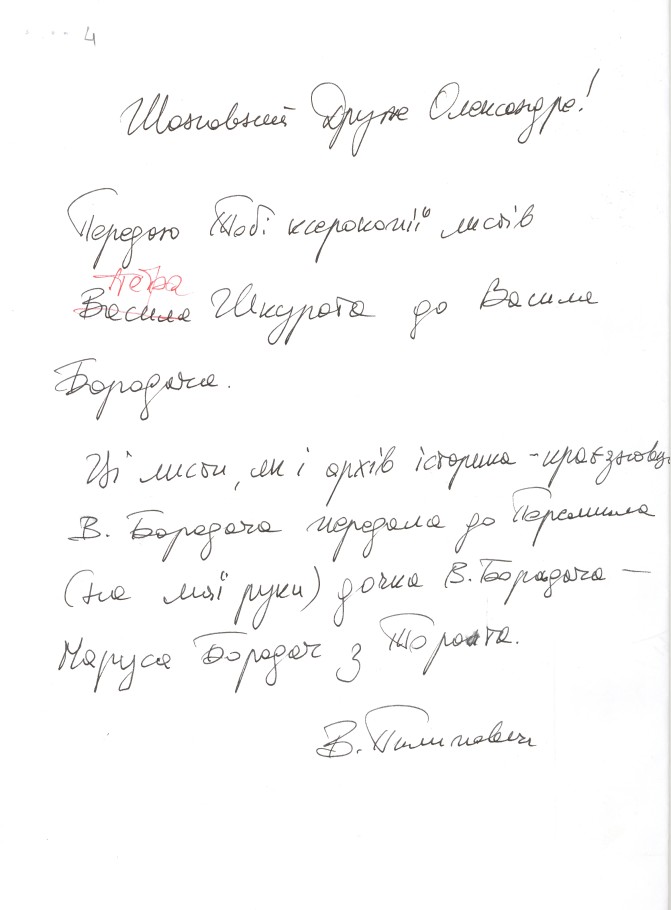 4
Шановний Друже Олександре!
Передаю Тобі ксерокопії листів
Петра
Василя Шкурата до Василя
Бородача.
Ці листи, як і архів історика - краєзнавця
В. Бородача передала до Перемишля
(на мої руки) дочка В. Бородача —
Маруся Бородач з Торонта.
В. Пилипович